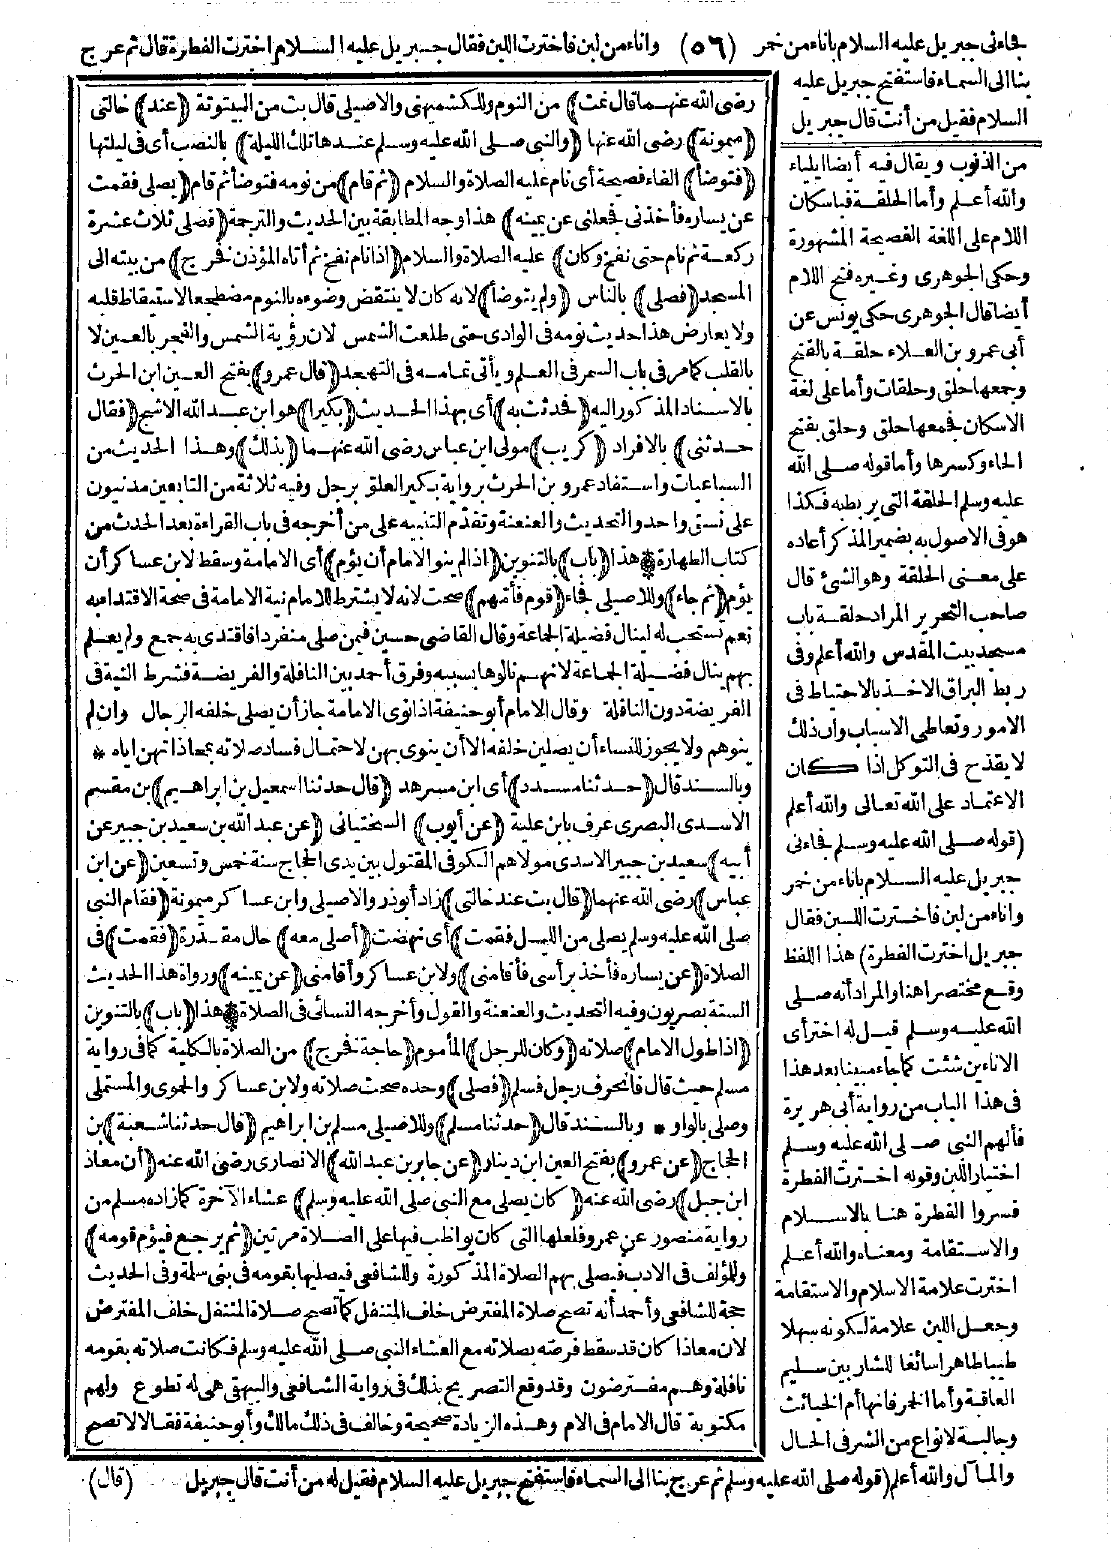 فجاءنى جبريل عليه السلام باناء من خمر (٥٦) واناء من لبن فاخترت اللبن فقال جبريل عليه السلام اخترت الفطرة قال ثم عرج
بنا الى السماء فاستفتح جبريل عليه
السلام فقيل من أنت قال جبريل
من الذنوب ويقال فيه أيضا ايلياء
والله أعلم وأما الحلقة فباسكان
اللام على اللغة الفصيحة المشهورة
وحكى الجوهرى وغيره فتح اللام
أيضا قال الجوهرى حكى يونس عن
أبى عمرو بن العلاء حلقة بالفتح
وجمعها حلق وحلقات وأما على لغة
الاسكان فجمعها حلق وحلق بفتح
الحاء وكسرها وأما قوله صلى الله
عليه وسلم الحلقة التى يربط به فكذا
هو فى الاصول به بضمير المذكر أعاده
على معنى الحلقة وهو الشئ قال
صاحب التحرير المراد حلقة باب
مسجد بيت المقدس والله أعلم وفى
ربط البراق الاخذ بالاحتياط فى
الامور وتعاطى الاسباب وان ذلك
لا يقدح فى التوكل اذا كان
الاعتماد على الله تعالى والله أعلم
(قوله صلى الله عليه وسلم فجاءنى
جبريل عليه السلام باناء من خمر
واناء من لبن فاخترت اللبن فقال
جبريل اخترت الفطرة) هذا اللفظ
وقع مختصرا هنا والمراد أنه صلى
الله عليه وسلم قيل له اختر أى
الاناءين شئت كما جاء مبينا بعد هذا
فى هذا الباب من رواية أبى هريرة
فألهم النبى صلى الله عليه وسلم
اختيار اللبن وقوله اخترت الفطرة
فسروا الفطرة هنا بالاسلام
والاستقامة ومعناه والله أعلم
اخترت علامة الاسلام والاستقامة
وجعل اللبن علامة لكونه سهلا
طيبا طاهرا سائغا للشاربين سليم
العاقبة وأما الخمر فانها أم الخبائث
وجالبة لانواع من الشر فى الحال
رضى الله عنهما قال نمت) من النوم وللكشميهنى والاصيلى قال بت من البيتوتة (عند) خالتى
(ميمونة) رضى الله عنها (والنبى صلى الله عليه وسلم عندها تلك الليلة) بالنصب أى فى ليلتها
(فتوضأ) الفاء فصيحة أى نام عليه الصلاة والسلام (ثم قام) من نومه فتوضأ ثم قام (يصلى فقمت
عن يساره فأخذنى فجعلنى عن يمينه) هذا وجه المطابقة بين الحديث والترجمة (فصلى ثلاث عشرة
ركعة ثم نام حتى نفخ وكان) عليه الصلاة والسلام (اذا نام نفخ ثم أتاه المؤذن فخرج) من بيته الى
المسجد (فصلى) بالناس (ولم يتوضأ) لانه كان لا ينتقض وضوءه بالنوم مضطجعا لاستيقاظ قلبه
ولا يعارض هذا حديث نومه فى الوادى حتى طلعت الشمس لان رؤية الشمس والفجر بالعين لا
بالقلب كما مر فى باب السمر فى العلم ويأتى تمامه فى التهجد (قال عمرو) بفتح العين ابن الحرث
بالاسناد المذكور اليه (فحدثت به) أى بهذا الحديث (بكيرا) هو ابن عبد الله الاشج (فقال
حدثنى) بالافراد (كريب) مولى ابن عباس رضى الله عنهما (بذلك) وهذا الحديث من
السباعيات واستفاد عمرو بن الحرث برواية بكير العلق برجل وفيه ثلاثة من التابعين مدنيون
على نسق واحد والتحديث والعنعنة وتقدم التنبيه على من أخرجه فى باب القراءة بعد الحدث من
كتاب الطهارة * هذا (باب) بالتنوين (اذا لم ينو الامام أن يؤم) أى الامامة وسقط لابن عساكر أن
يؤم (ثم جاء) وللاصيلى فجاء (قوم فأمهم) صحت لانه لا يشترط للامام نية الامامة فى صحة الاقتداء به
نعم تستحب له لينال فضيلة الجماعة وقال القاضى حسين فيمن صلى منفردا فاقتدى به جمع ولم يعلم
بهم ينال فضيلة الجماعة لانهم نالوها بسببه وفرق أحمد بين النافلة والفريضة فشرط النية فى
الفريضة دون النافلة وقال الامام أبو حنيفة اذا نوى الامامة جاز أن يصلى خلفه الرجال وان لم
ينوهم ولا يجوز للنساء أن يصلين خلفه الا أن ينوى بهن لاحتمال فساد صلاته بمحاذاتهن اياه *
وبالسند قال (حدثنا مسدد) أى ابن مسرهد (قال حدثنا اسمعيل بن ابراهيم) بن مقسم
الاسدى البصرى عرف بابن علية (عن أيوب) السختيانى (عن عبد الله بن سعيد بن جبير عن
أبيه) سعيد بن جبير الاسدى مولاهم الكوفى المقتول بين يدى الحجاج سنة خمس وتسعين (عن ابن
عباس) رضى الله عنهما (قال بت عند خالتى) زاد أبو ذر والاصيلى وابن عساكر ميمونة (فقام النبى
صلى الله عليه وسلم يصلى من الليل فقمت) أى نهضت (أصلى معه) حال مقدرة (فقمت) فى
الصلاة (عن يساره فأخذ برأسى فأقامنى) ولابن عساكر وأقامنى (عن يمينه) ورواة هذا الحديث
الستة بصريون وفيه التحديث والعنعنة والقول وأخرجه النسائى فى الصلاة * هذا (باب) بالتنوين
(اذا طول الامام) صلاته (وكان للرجل) المأموم (حاجة فخرج) من الصلاة بالكلية كما فى رواية
مسلم حيث قال فانحرف رجل فسلم (فصلى) وحده صحت صلاته ولابن عساكر والحموى والمستملى
وصلى بالواو * وبالسند قال (حدثنا مسلم) وللاصيلى مسلم بن ابراهيم (قال حدثنا شعبة) بن
الحجاج (عن عمرو) بفتح العين ابن دينار (عن جابر بن عبد الله) الانصارى رضى الله عنه (أن معاذ
ابن جبل) رضى الله عنه (كان يصلى مع النبى صلى الله عليه وسلم) عشاء الآخرة كما زاده مسلم من
رواية منصور عن عمرو فلعلها التى كان يواظب فيها على الصلاة مرتين (ثم يرجع فيؤم قومه)
وللمؤلف فى الادب فيصلى بهم الصلاة المذكورة وللشافعى فيصليها بقومه فى بنى سلمة وفى الحديث
حجة للشافعى وأحمد أنه تصح صلاة المفترض خلف المتنفل كما تصح صلاة المتنفل خلف المفترض
لان معاذا كان قد سقط فرضه بصلاته مع العشاء النبى صلى الله عليه وسلم فكانت صلاته بقومه
نافلة وهم مفترضون وقد وقع التصريح بذلك فى رواية الشافعى والبيهقى هى له تطوع ولهم
مكتوبة قال الامام فى الام وهذه الزيادة صحيحة وخالف فى ذلك مالك وأبو حنيفة فقالا لا تصح
والمآل والله أعلم (قوله صلى الله عليه وسلم ثم عرج بنا الى السماء فاستفتح جبريل عليه السلام فقيل له من أنت قال جبريل (قال)